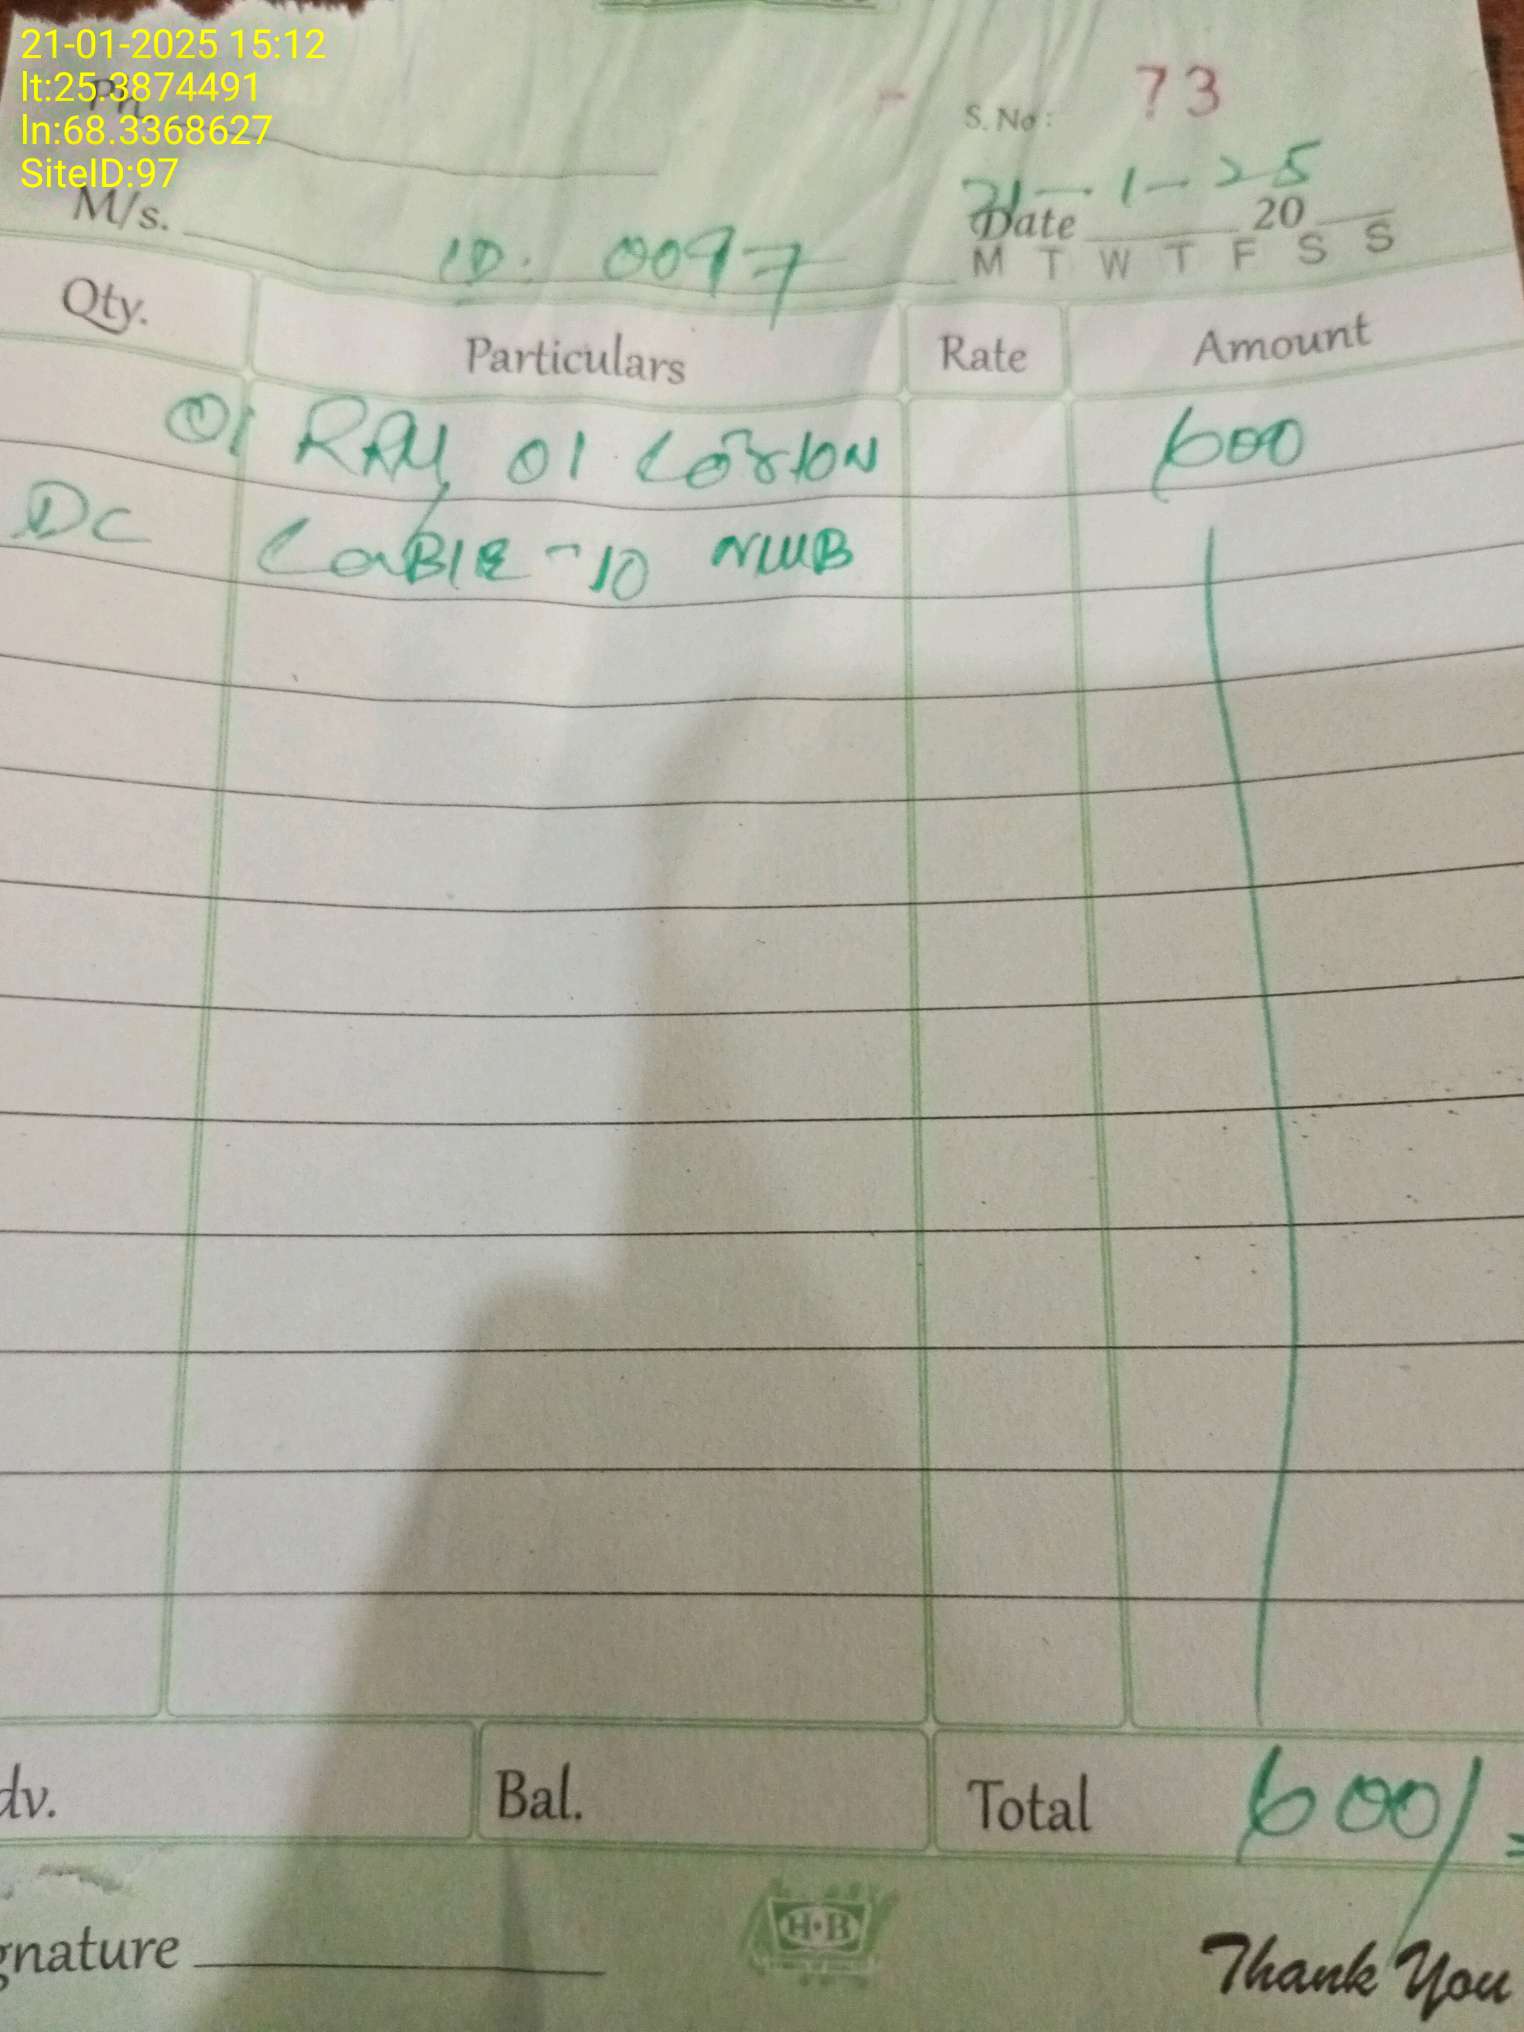 21-01-2025 15:12
lt:25.3874491
ln:68.3368627
SiteID:97
Ph
S. No: 73
21-1-25
Date 20
M/s.
M T W T F S S
ID. 0097
Qty. Particulars Rate Amount
01 01 600
DC CaBlE - 10
dv. Bal. Total 600/=
gnature
H·B
Thank You